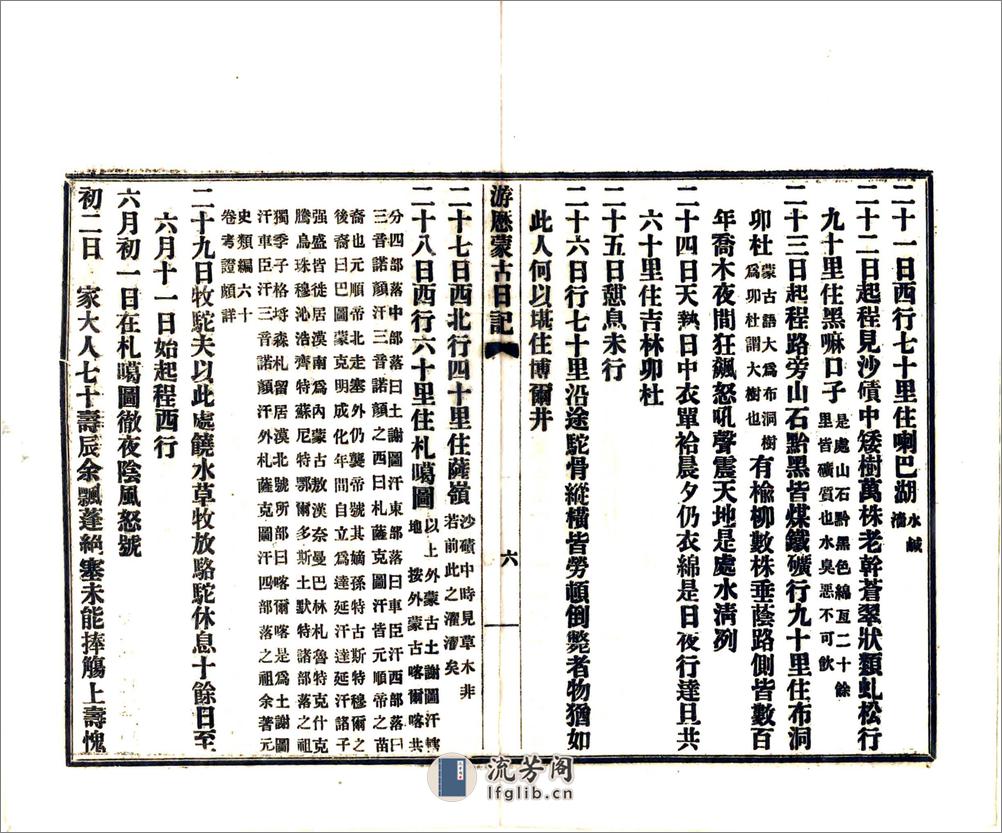 二十一日西行七十里住喇巴湖水鹹濇
二十二日起程見沙磧中矮樹萬株老幹蒼翠狀類虬松行
九十里住黑嘛口子是處山石黔黑色綿亙二十餘里皆礦質也水臭惡不可飲
二十三日起程路旁山石黔黑皆煤鐵礦行九十里住布洞
卯杜蒙古語大為布洞樹為卯杜謂大樹也有榆柳數株垂蔭路側皆數百
年喬木夜間狂飆怒吼聲震天地是處水清洌
二十四日天熱日中衣單袷晨夕仍衣綿是日夜行達旦共
六十里住吉林卯杜
二十五日憩息未行
二十六日行七十里沿途駝骨縱橫皆勞頓倒斃者物猶如
此人何以堪住博爾井
游歷蒙古日記
六
二十七日西北行四十里住薩嶺沙磧中時見草木非若前此之濯濯矣
二十八日西行六十里住札噶圖以上外蒙古土謝圖汗轄地 按外蒙古喀爾喀共
分四部落中部落曰土謝圖汗東部落曰車臣汗西部落曰
三音諾顏汗三音諾顏之西曰札薩克圖汗皆元順帝之苗
裔也元順帝北走塞外仍襲帝號其嫡孫特古斯特穆爾之
後裔曰巴圖蒙克明成化年間自立為達延汗達延汗諸子
强盛皆徙居漠南為內蒙古敖漢奈曼巴林札魯特克什克
騰烏珠穆沁浩齊特蘇尼特鄂爾多斯土默特諸部落之祖
獨季子格埒森札留居漠北號所部曰喀爾喀是為土謝圖
汗車臣汗三音諾顏汗外札薩克圖汗四部落之祖余著元
史類編六十卷考證頗詳
二十九日牧駝夫以此處饒水草牧放駱駝休息十餘日至
六月十一日始起程西行
六月初一日在札噶圖徹夜陰風怒號
初二日 家大人七十壽辰余飄蓬絕塞未能捧觴上壽愧
流芳阁
lfglib.cn